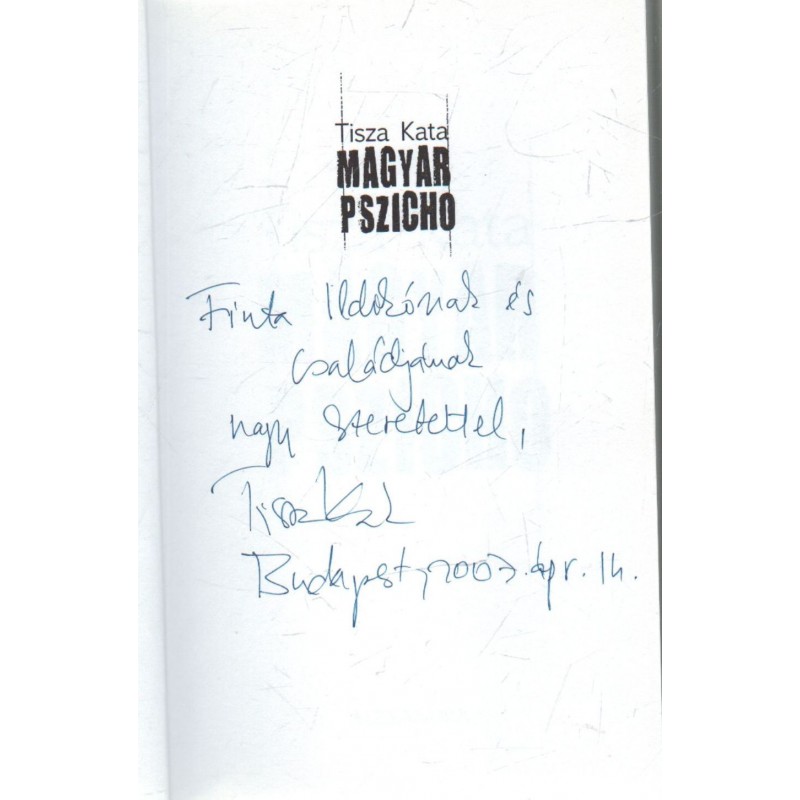 Tisza Kata
MAGYAR
PSZICHO
Finta Ildikónak és
családjának
nagy szeretettel,
Tisza Kata
Budapest, 2007. ápr. 14.